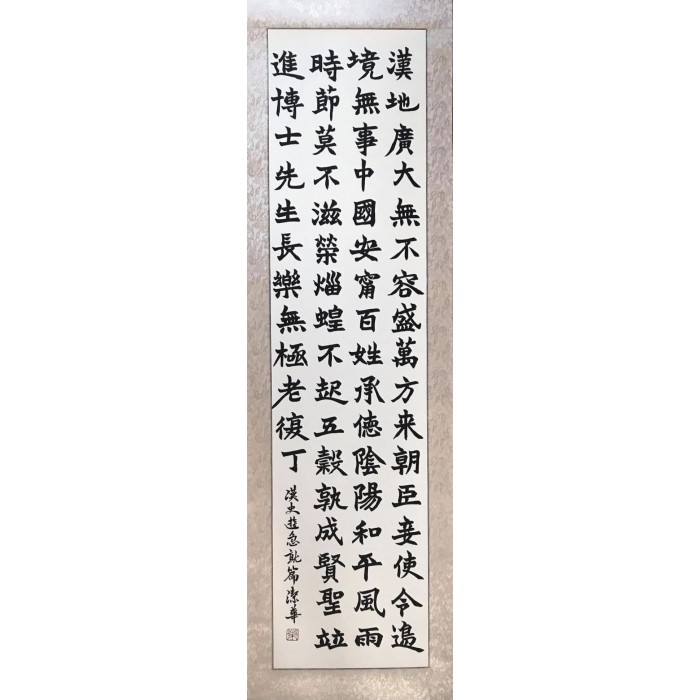 漢地廣大無不容盛萬方来朝臣妾使令邉
境無事中國安甯百姓承德陰陽和平風雨
時節莫不滋榮災蝗不起五穀孰成賢聖竝
進博士先生長樂無極老復丁
漢史游急就篇 潔華